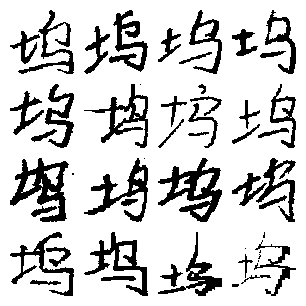 坞坞坞坞
坞坞坞坞
坞坞坞坞
坞坞坞坞